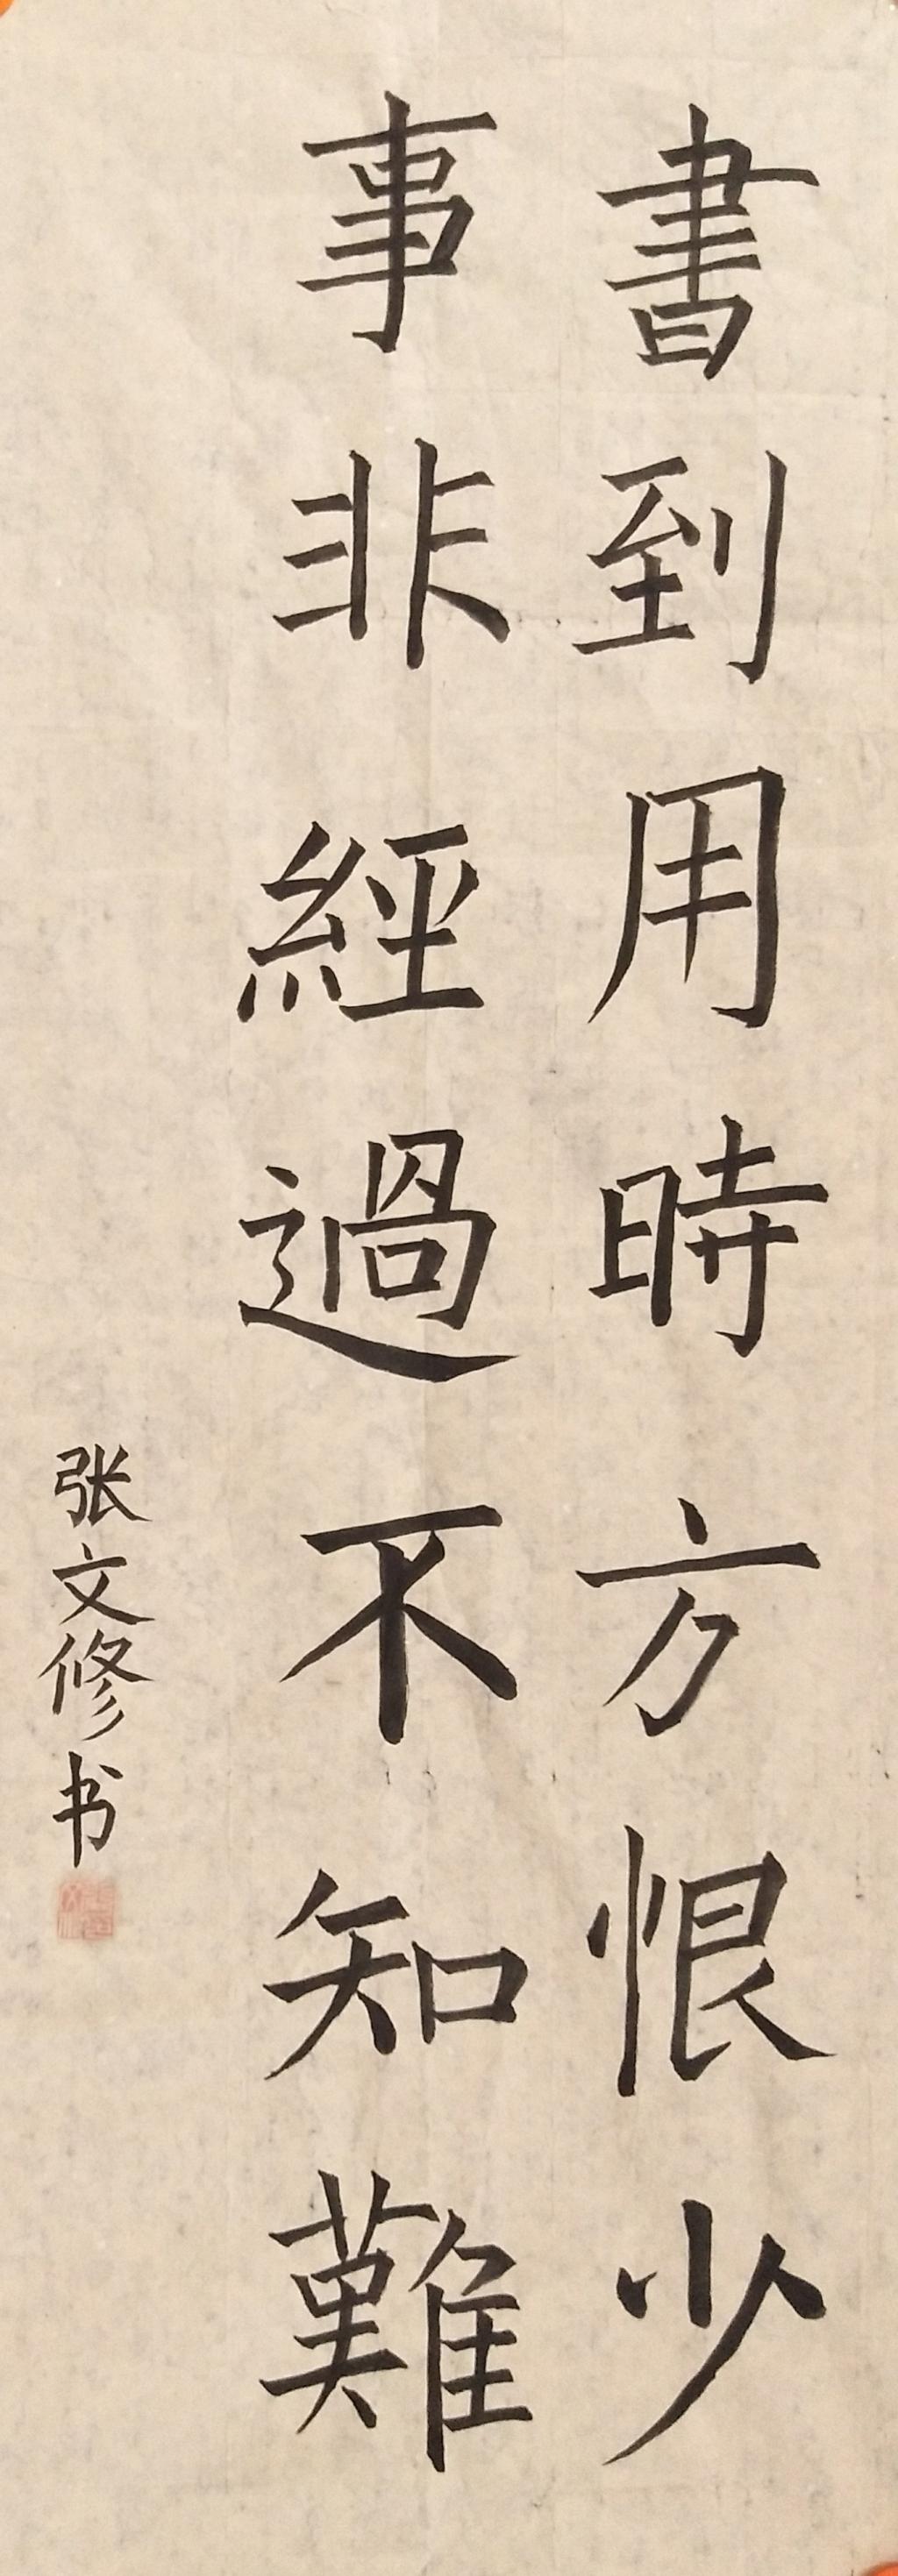 書到用時方恨少
事非經過不知難
张文修书